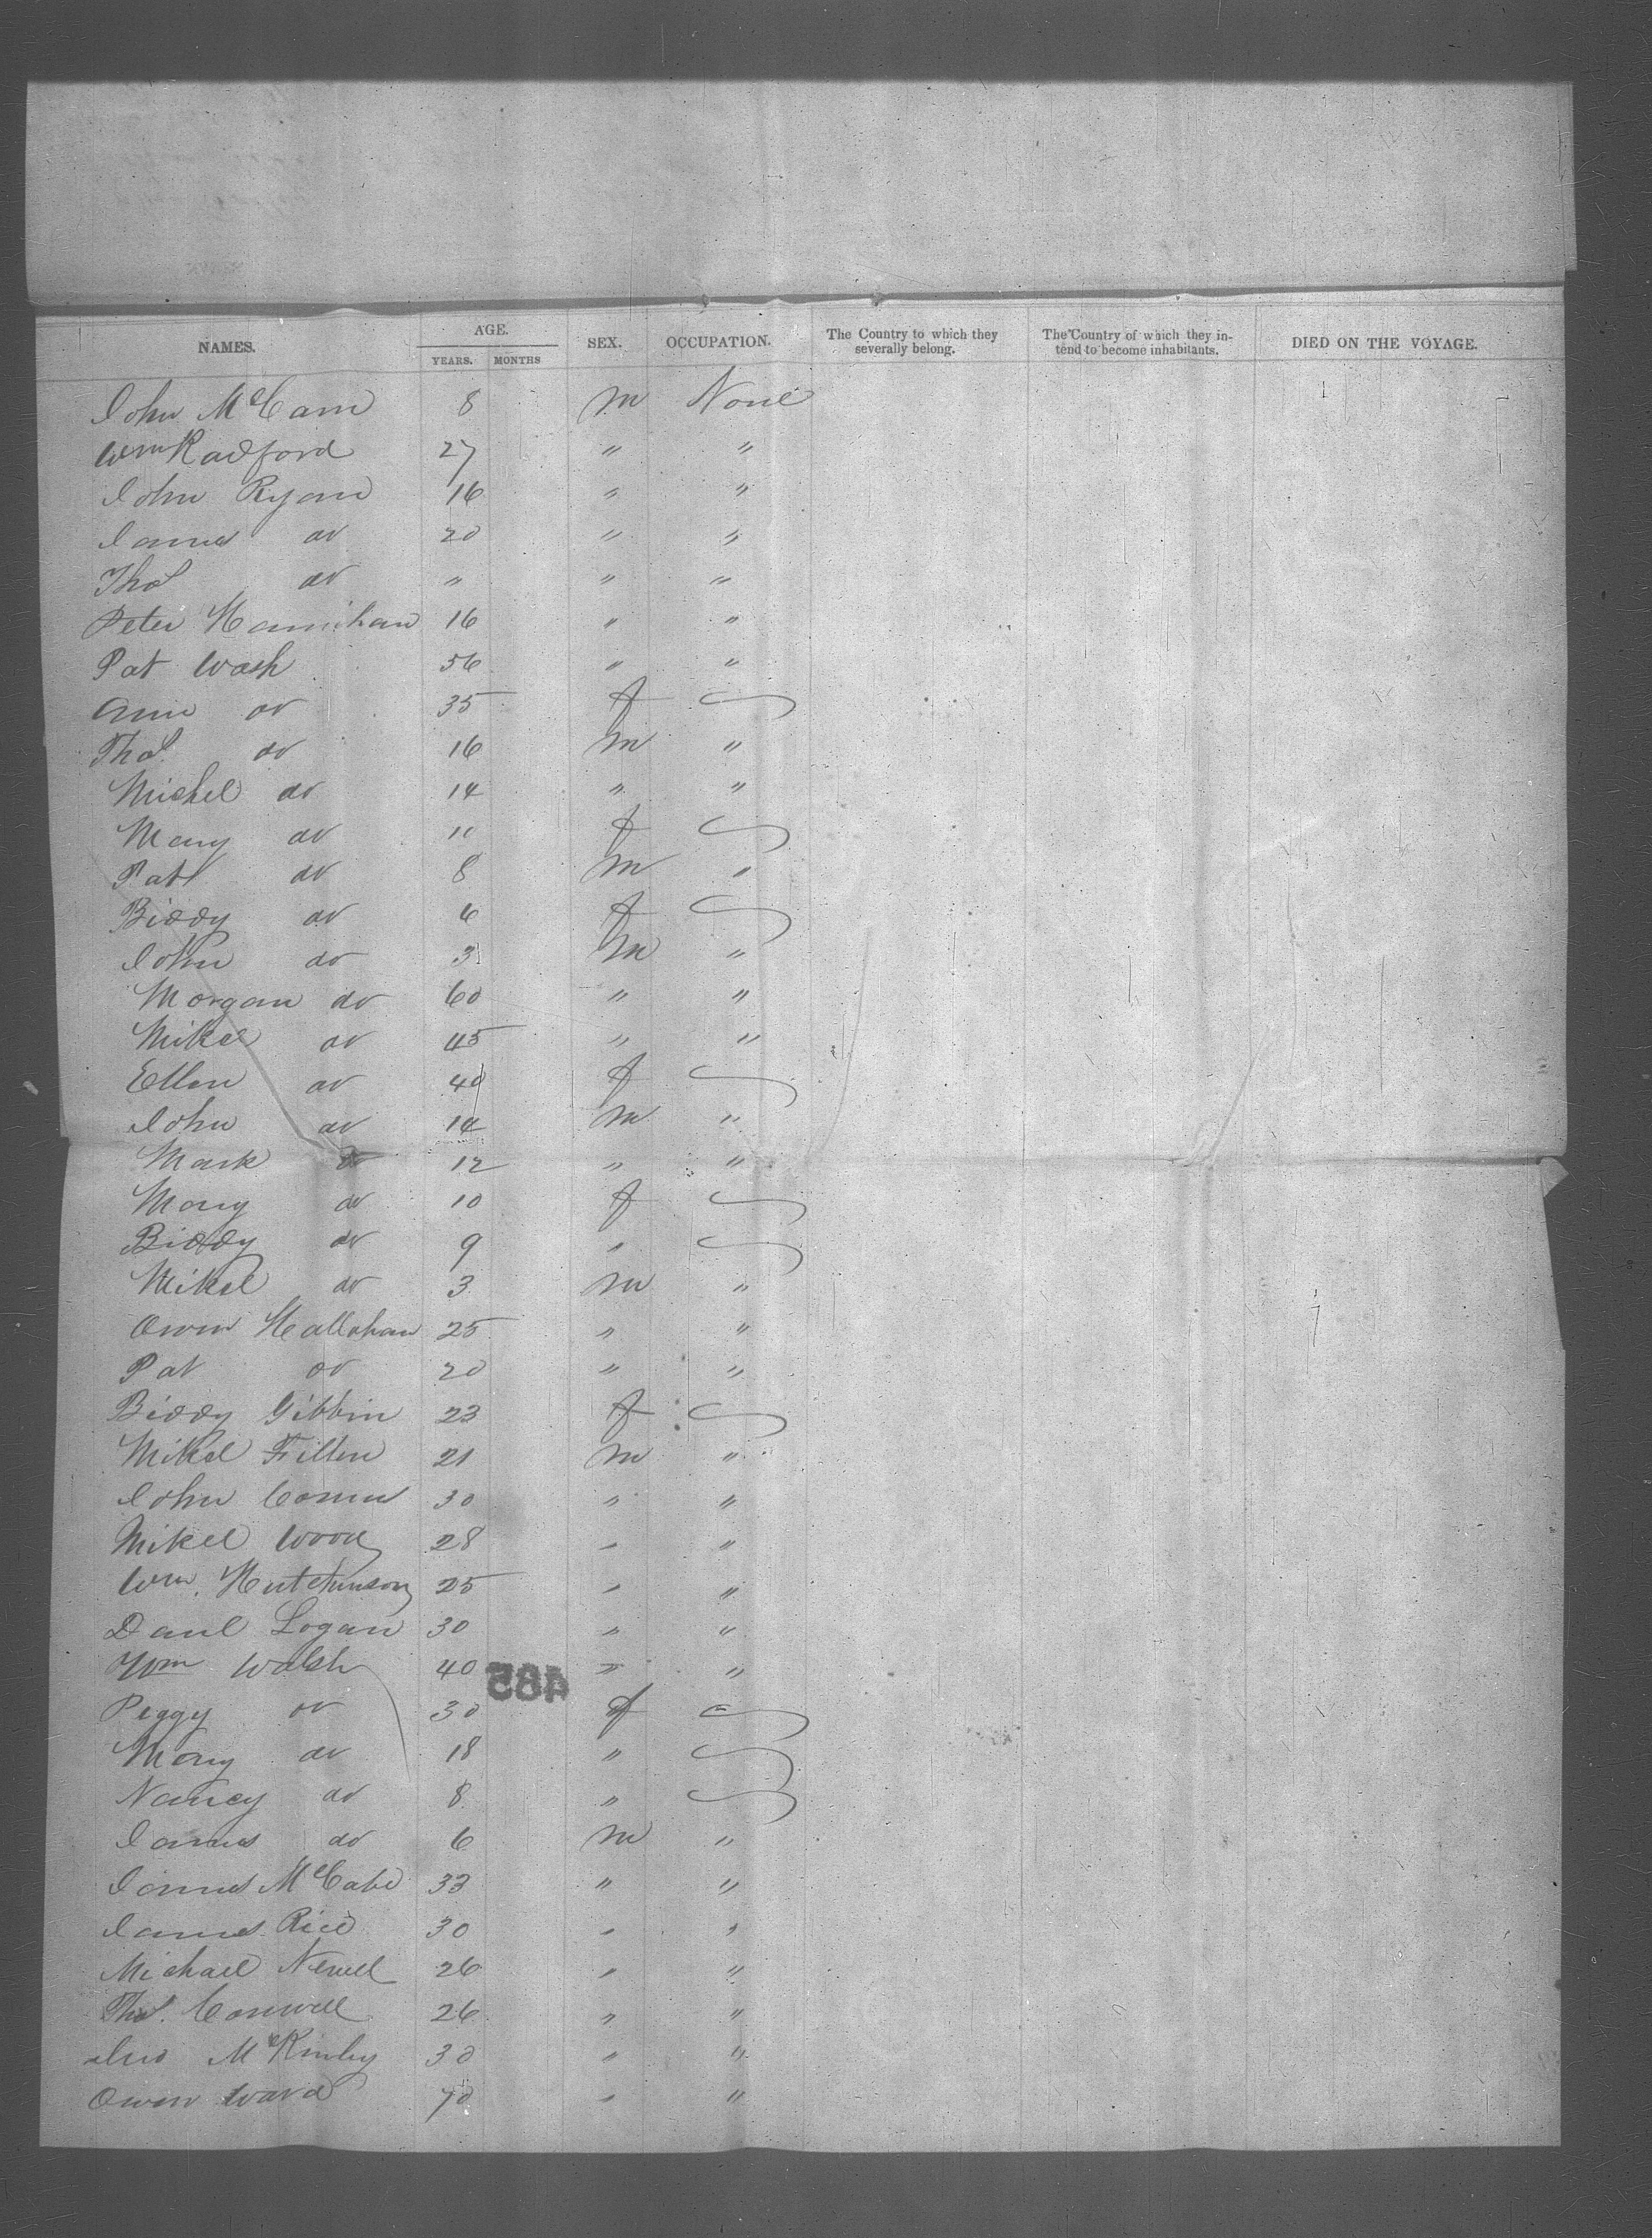 NAMES. AGE. SEX. OCCUPATION. The Country to which they severally belong. The Country of which they intend to become inhabitants. DIED ON THE VOYAGE.
YEARS. MONTHS
John McCann 8 m None
Wm Radford 27 " "
John Ryan 16 " "
James do 20 " "
Thos do " " "
Peter Hannihan 16 " "
Pat Wash 56 " "
Ann do 35 f
Thos. do 16 m "
Michel do 14 " "
Mary do 11 f
Pat do 8 m "
Biddy do 6 f
John do 3 m "
Morgan do 60 " "
Mikel do 45 " "
Ellen do 40 f
John do 14 m "
Mark do 12 " "
Mary do 10 f
Biddy do 9 "
Mikel do 3 m "
Owen Hallohan 25 " "
Pat do 20 " "
Biddy Gibbin 23 f
Mikel Fillen 21 m "
John 30 " "
Mikel Wood 28 " "
Wm. Hutchinson 25 " "
Danl Logan 30 " "
Wm Walsh 40 " "
485
Peggy do 30 f
Mary do 18 "
Nancy do 8 "
James do 6 m "
James McCabe 33 " "
James Rice 30 " "
Michael Newel 26 " "
Thos. Conwell 26 " "
Jno McKinley 30 " "
Owen Ward 70 " "